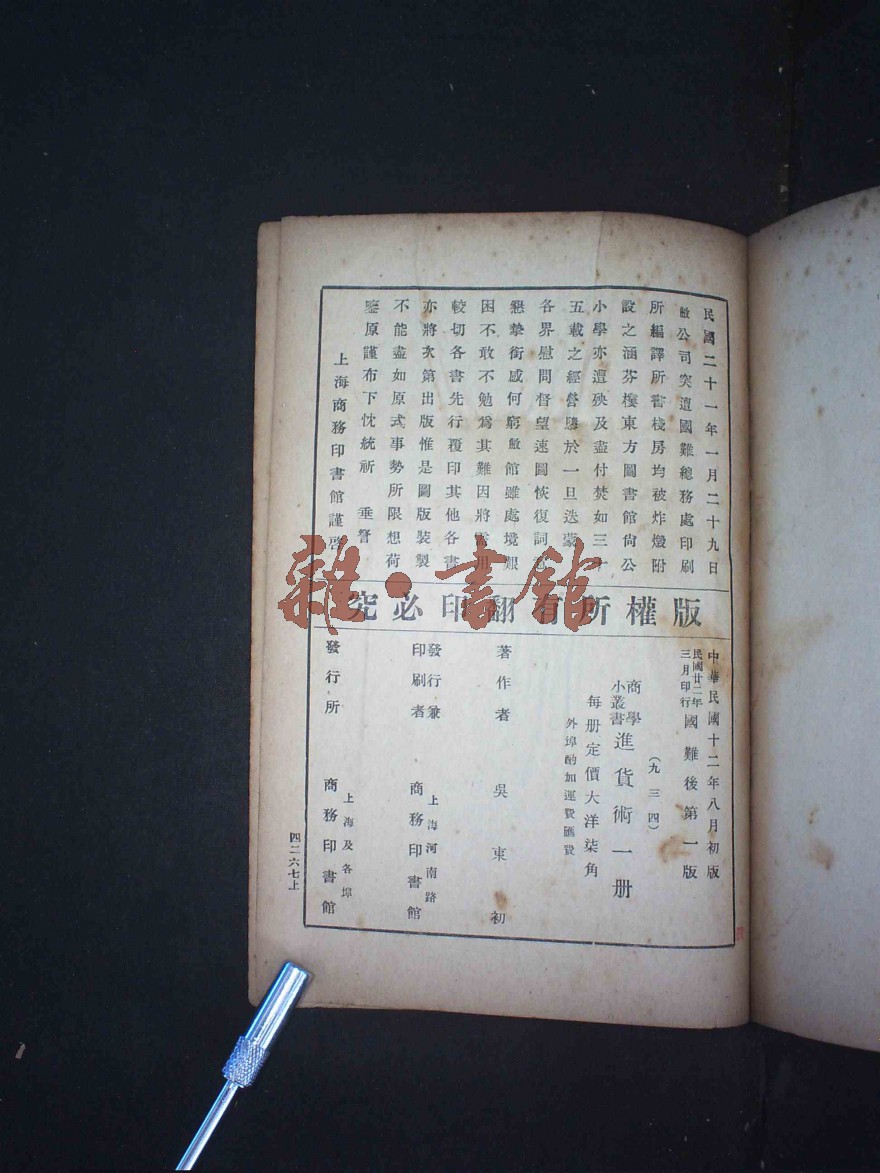 民國二十一年一月二十九日
敝公司突遭國難總務處印刷
所編譯所書棧房均被炸燬附
設之涵芬樓東方圖書館尚公
小學亦遭殃及盡付焚如三十
五載之經營隳於一旦迭蒙
各界慰問督望速圖恢復詞意
懇摯銜感何窮敝館雖處境艱
困不敢不勉爲其難因將需用
較切各書先行覆印其他各書
亦將次第出版惟是圖版裝製
不能盡如原式事勢所限想荷
鑒原謹布下忱統祈 垂詧
上海商務印書館謹啓
版權所有翻印必究
中華民國十二年八月初版
民國廿二年三月印行國難後第一版
(九三四)
商學小叢書進貨術一册
每册定價大洋柒角
外埠酌加運費匯費
著作者 吳東初
發行兼印刷者 上海河南路 商務印書館
發行所 上海及各埠 商務印書館
四二六七上
雜·書館